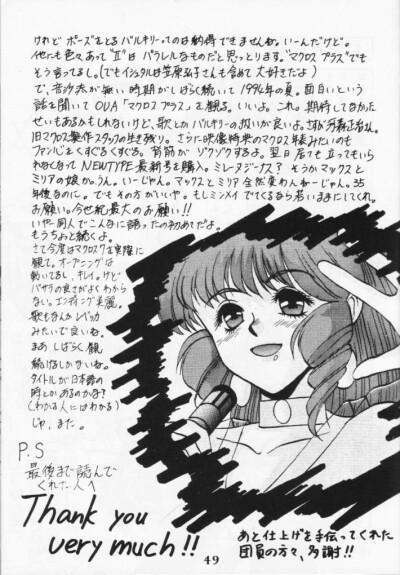 けれど ポーズをとるバルキリーってのは納得できませんね。いーんだけど。
他にも色々あって"Ⅱ"はパラレルなものだと思っとります。"マクロスプラス"でも
そう言ってるし。(でもイシュタルは笠原弘子さんも含めて大好きだよ)
で、音沙汰が無い時期がしばらく続いて1994年の夏。面白いという
話を聞いてOVA「マクロスプラス」を観る。いいよ。これ。期待してなかった
せいもあるかもしれないけど、歌とかバルキリーの扱いが良いよ。さすが河森正治さん。
旧マクロス製作スタッフの生き残り。さらに映像特典のマクロス年表みたいのも
ファン心をくすぐるくすぐる。背筋がゾクゾクするよ。翌日居ても立ってもいら
れなくなってNEWTYPE最新号を購入。ミレーヌジーナス? そうかマックスと
ミリアの娘か。うん。いーじゃん。マックスとミリア全然変わんねーじゃん。35
年後なのに。でもその方がいいや。もしミンメイでてくるなら若いままにしてくれ。
お願い。今世紀最大のお願い!!
いやー同人でこんなに語ったの初めてだよ。
もうちょと続くよ。
さて今度はマクロス7を実際に
観て。オープニングは
動いてるし、キレイ。けど
バサラの良さがよくわから
ない。エンディング美麗。
歌もなんかバッカ
みたいで良いね。
まぁしばらく観
続けるしかないね。
タイトルが日本語の
時とかあるのかな?
(わかる人にはわかる)
じゃ、また。
P.S
最後まで読んで
くれた人へ
Thank you
very much!!
あと仕上げを手伝ってくれた
団員の方々、多謝!!
49